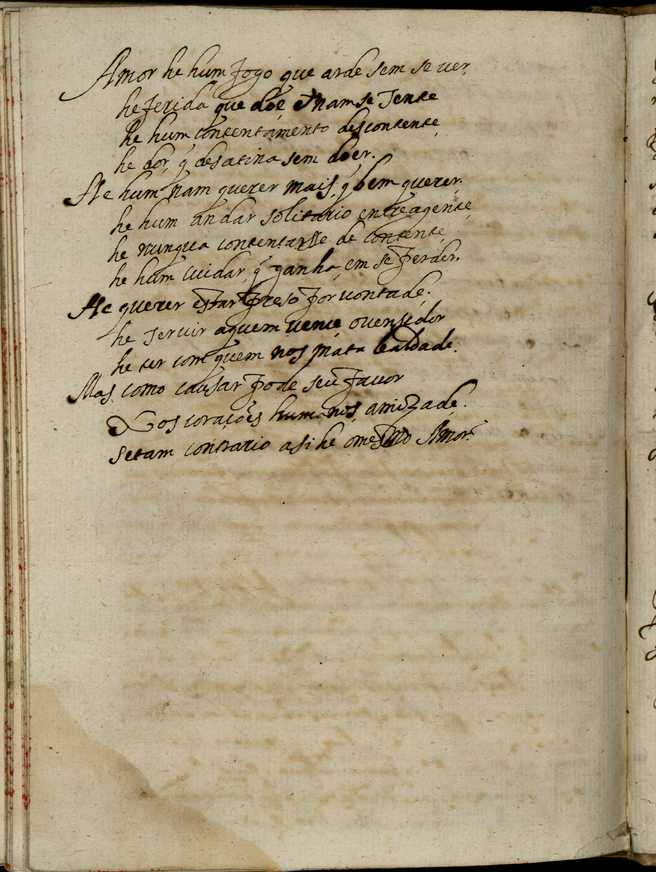 Amor he hum fogo que arde sem se ver,
he ferida que doe e nam se sente
he hum contentamento descontente
he dor, q̃ desatina sem doer.
He hum nam querer mais q̃ bem querer.
he hum andar solitario entre a gente
he nunqua contentarsse de contente
he hum cuidar, q̃ ganha, em se perder.
He querer estar preso por vontade.
he servir aquem vence o vensedor
he ter com quem nos mata lealdade.
Mas como causar pode seu favor
Nos coracoẽs humanos amizade.
se tam contrario asi he o mesmo Amor.